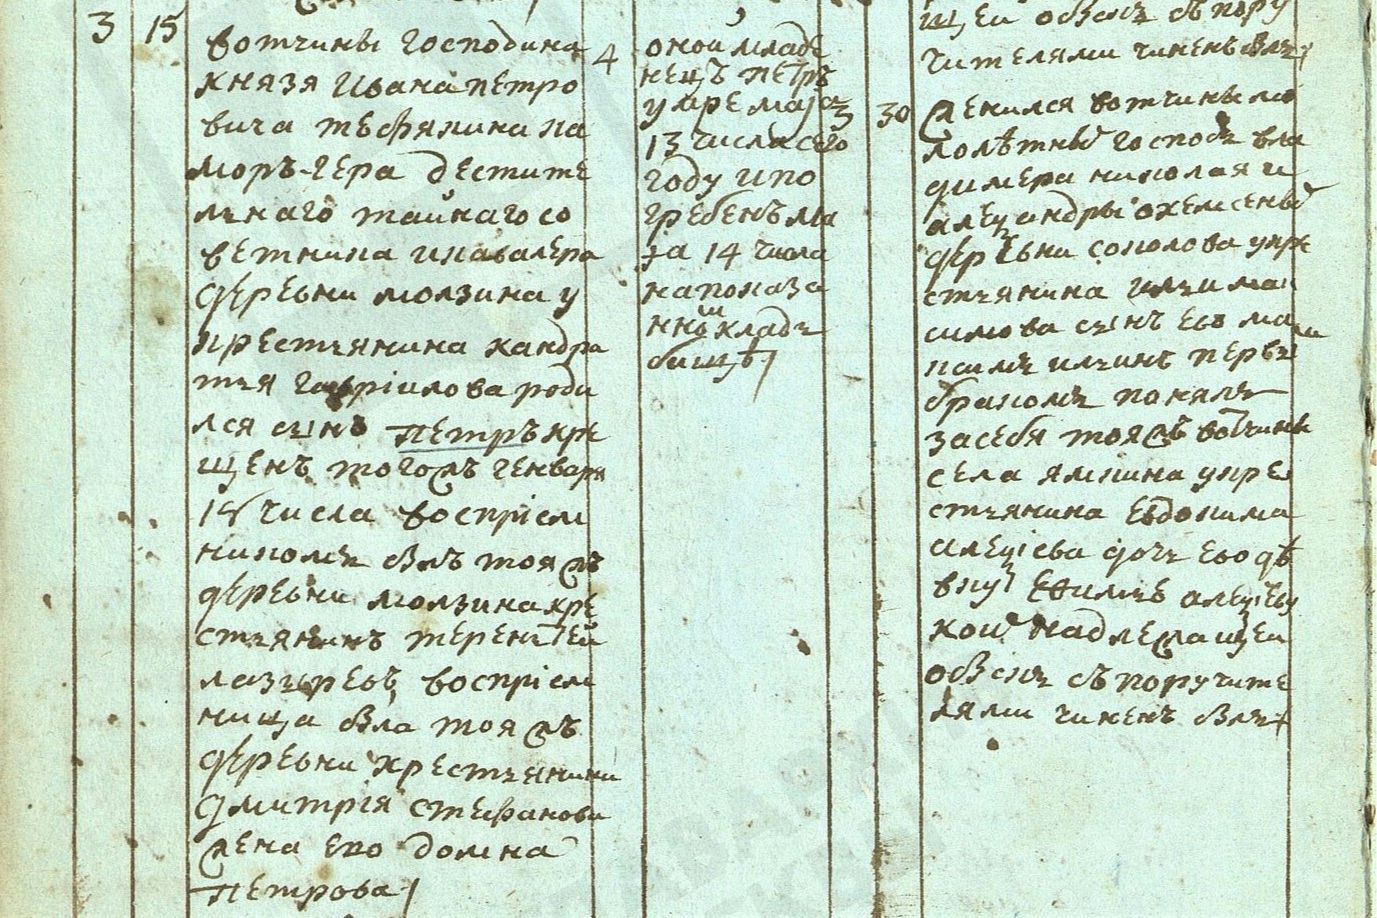 3 15
вотчины господина
князя Ивана петро
вича
деистите
лнаго таинаго со
ветника икавалера
деревни молзина у
крестьянина кандра
тья гавріилова роди
лся сынъ петръ кре
щенъ тогожъ генваря
15 числа воспріем
никомъ былъ тояжъ
деревни молзина кре
стьянинъ терентей
лазыревъ воспріем
ница была тояжъ
деревни крестьянина
дмитрія стефанова
жена ево домна
петрова
4
оной младе
нецъ петръ
умре маја
13 числа сего
году и по
гребенъ ма
ја 14 числа
на показа
нномъ кладъ
бищѣ
щей обыскъ съ пору
чителями чиненъ былъ
3 30
женился вотчины ма
лолѣтныхъ господъ вла
димера николая и
александры
деревни соколова у кре
стьянина
симова сынъ ево ма
ксимъ ильинъ первымъ
бракомъ понялъ
за себя тояжъ вотчины
села ямкина у кре
стьянина евдокима
алеѯіева дочь ево дѣ
вку Евѳимью алеѯіеву
кои надлежащеи
обыскъ съ поручите
лями чиненъ былъ